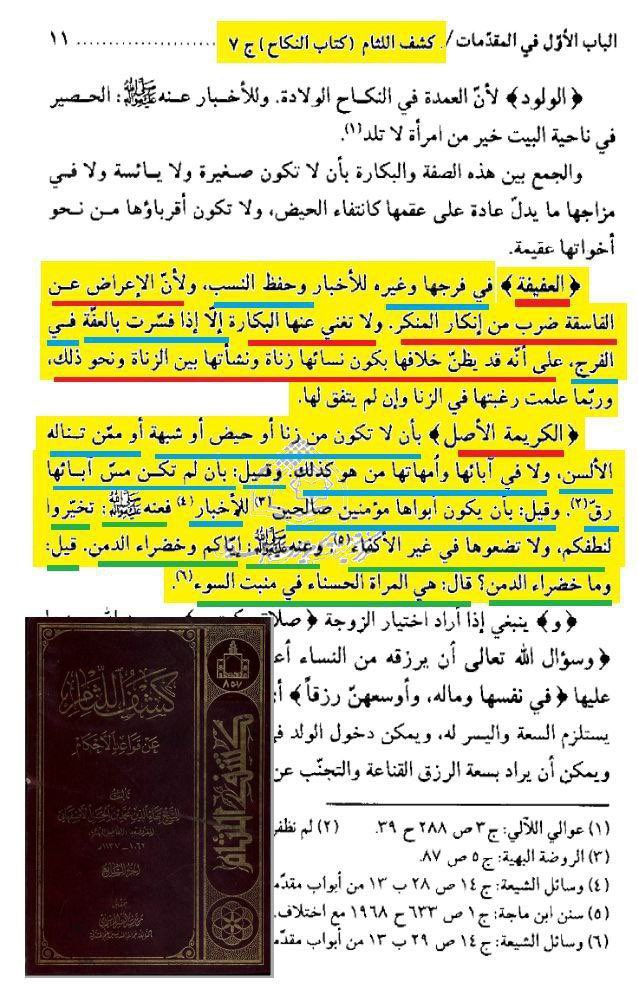 الباب الأوّل في المقدّمات / كشف اللثام (كتاب النكاح) ج ٧ ........................ ١١
﴿الولود﴾ لأنّ العمدة في النكاح الولادة. وللأخبار عنه ﷺ: الحصير
في ناحية البيت خير من امرأة لا تلد(١).
والجمع بين هذه الصفة والبكارة بأن لا تكون صغيرة ولا يائسة ولا في
مزاجها ما يدلّ عادة على عقمها كانتفاء الحيض، ولا تكون أقرباؤها من نحو
أخواتها عقيمة.
﴿العفيفة﴾ في فرجها وغيره للأخبار وحفظ النسب، ولأنّ الإعراض عن
الفاسقة ضرب من إنكار المنكر. ولا تغني عنها البكارة إلّا إذا فسّرت بالعفّة في
الفرج، على أنّه قد يظنّ خلافها بكون نسائها زناة ونشأتها بين الزناة ونحو ذلك،
وربّما علمت رغبتها في الزنا وإن لم يتفق لها.
﴿الكريمة الأصل﴾ بأن لا تكون من زنا أو حيض أو شبهة أو ممّن تناله
الألسن، ولا في آبائها وأُمهاتها من هو كذلك. وقيل: بأن لم تكن مسّ آبائها
رقّ(٢). وقيل: بأن يكون أبواها مؤمنين صالحين(٣) للأخبار(٤) فعنه ﷺ: تخيّروا
لنطفكم، ولا تضعوها في غير الأكفاء(٥) وعنه ﷺ: إيّاكم وخضراء الدمن. قيل:
وما خضراء الدمن؟ قال: هي المرأة الحسناء في منبت السوء(٦).
﴿و﴾ ينبغي إذا أراد اختيار الزوجة ﴿صلاة
﴿وسؤال الله تعالى أن يرزقه من النساء
عليها ﴿في نفسها وماله، وأوسعهنّ رزقاً﴾
يستلزم السعة واليسر له، ويمكن دخول الولد
ويمكن أن يراد بسعة الرزق القناعة والتجنّب عن
(١) عوالي اللآلي: ج ٣ ص ٢٨٨ ح ٣٩. (٢) لم نظفر
(٣) الروضة البهية: ج ٥ ص ٨٧.
(٤) وسائل الشيعة: ج ١٤ ص ٢٨ ب ١٣ من أبواب
(٥) سنن ابن ماجة: ج ١ ص ٦٣٣ ح ١٩٦٨ مع اختلاف.
(٦) وسائل الشيعة: ج ١٤ ص ٢٩ ب ١٣ من أبواب
٨٥٧
كشف اللثام
عن قواعد الأحكام
تأليف
١٠٦٢ - ١١٣٧ هـ
الجزء السابع
كشف اللثام